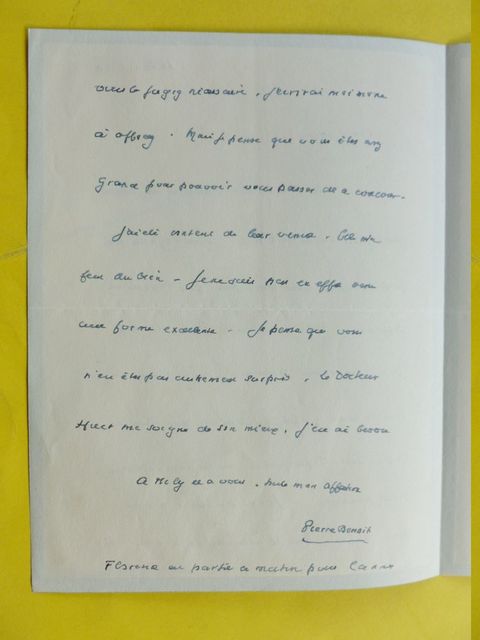 vous le jugez nécessaire, j'écrirai moi même
à . Mais je pense que vous êtes assez
grand pour pouvoir vous passer de ce concours.
J'ai été content de leur venue. Cela m'a
fait du bien - Je ne suis pas en effet dans
une forme excellente - Je pense que vous
n'en êtes pas autrement surpris. Le Docteur
Huet me soigne de son mieux. J'en ai besoin
A et à vous, toute mon affection
Pierre Benoit
est partie ce matin pour Cannes